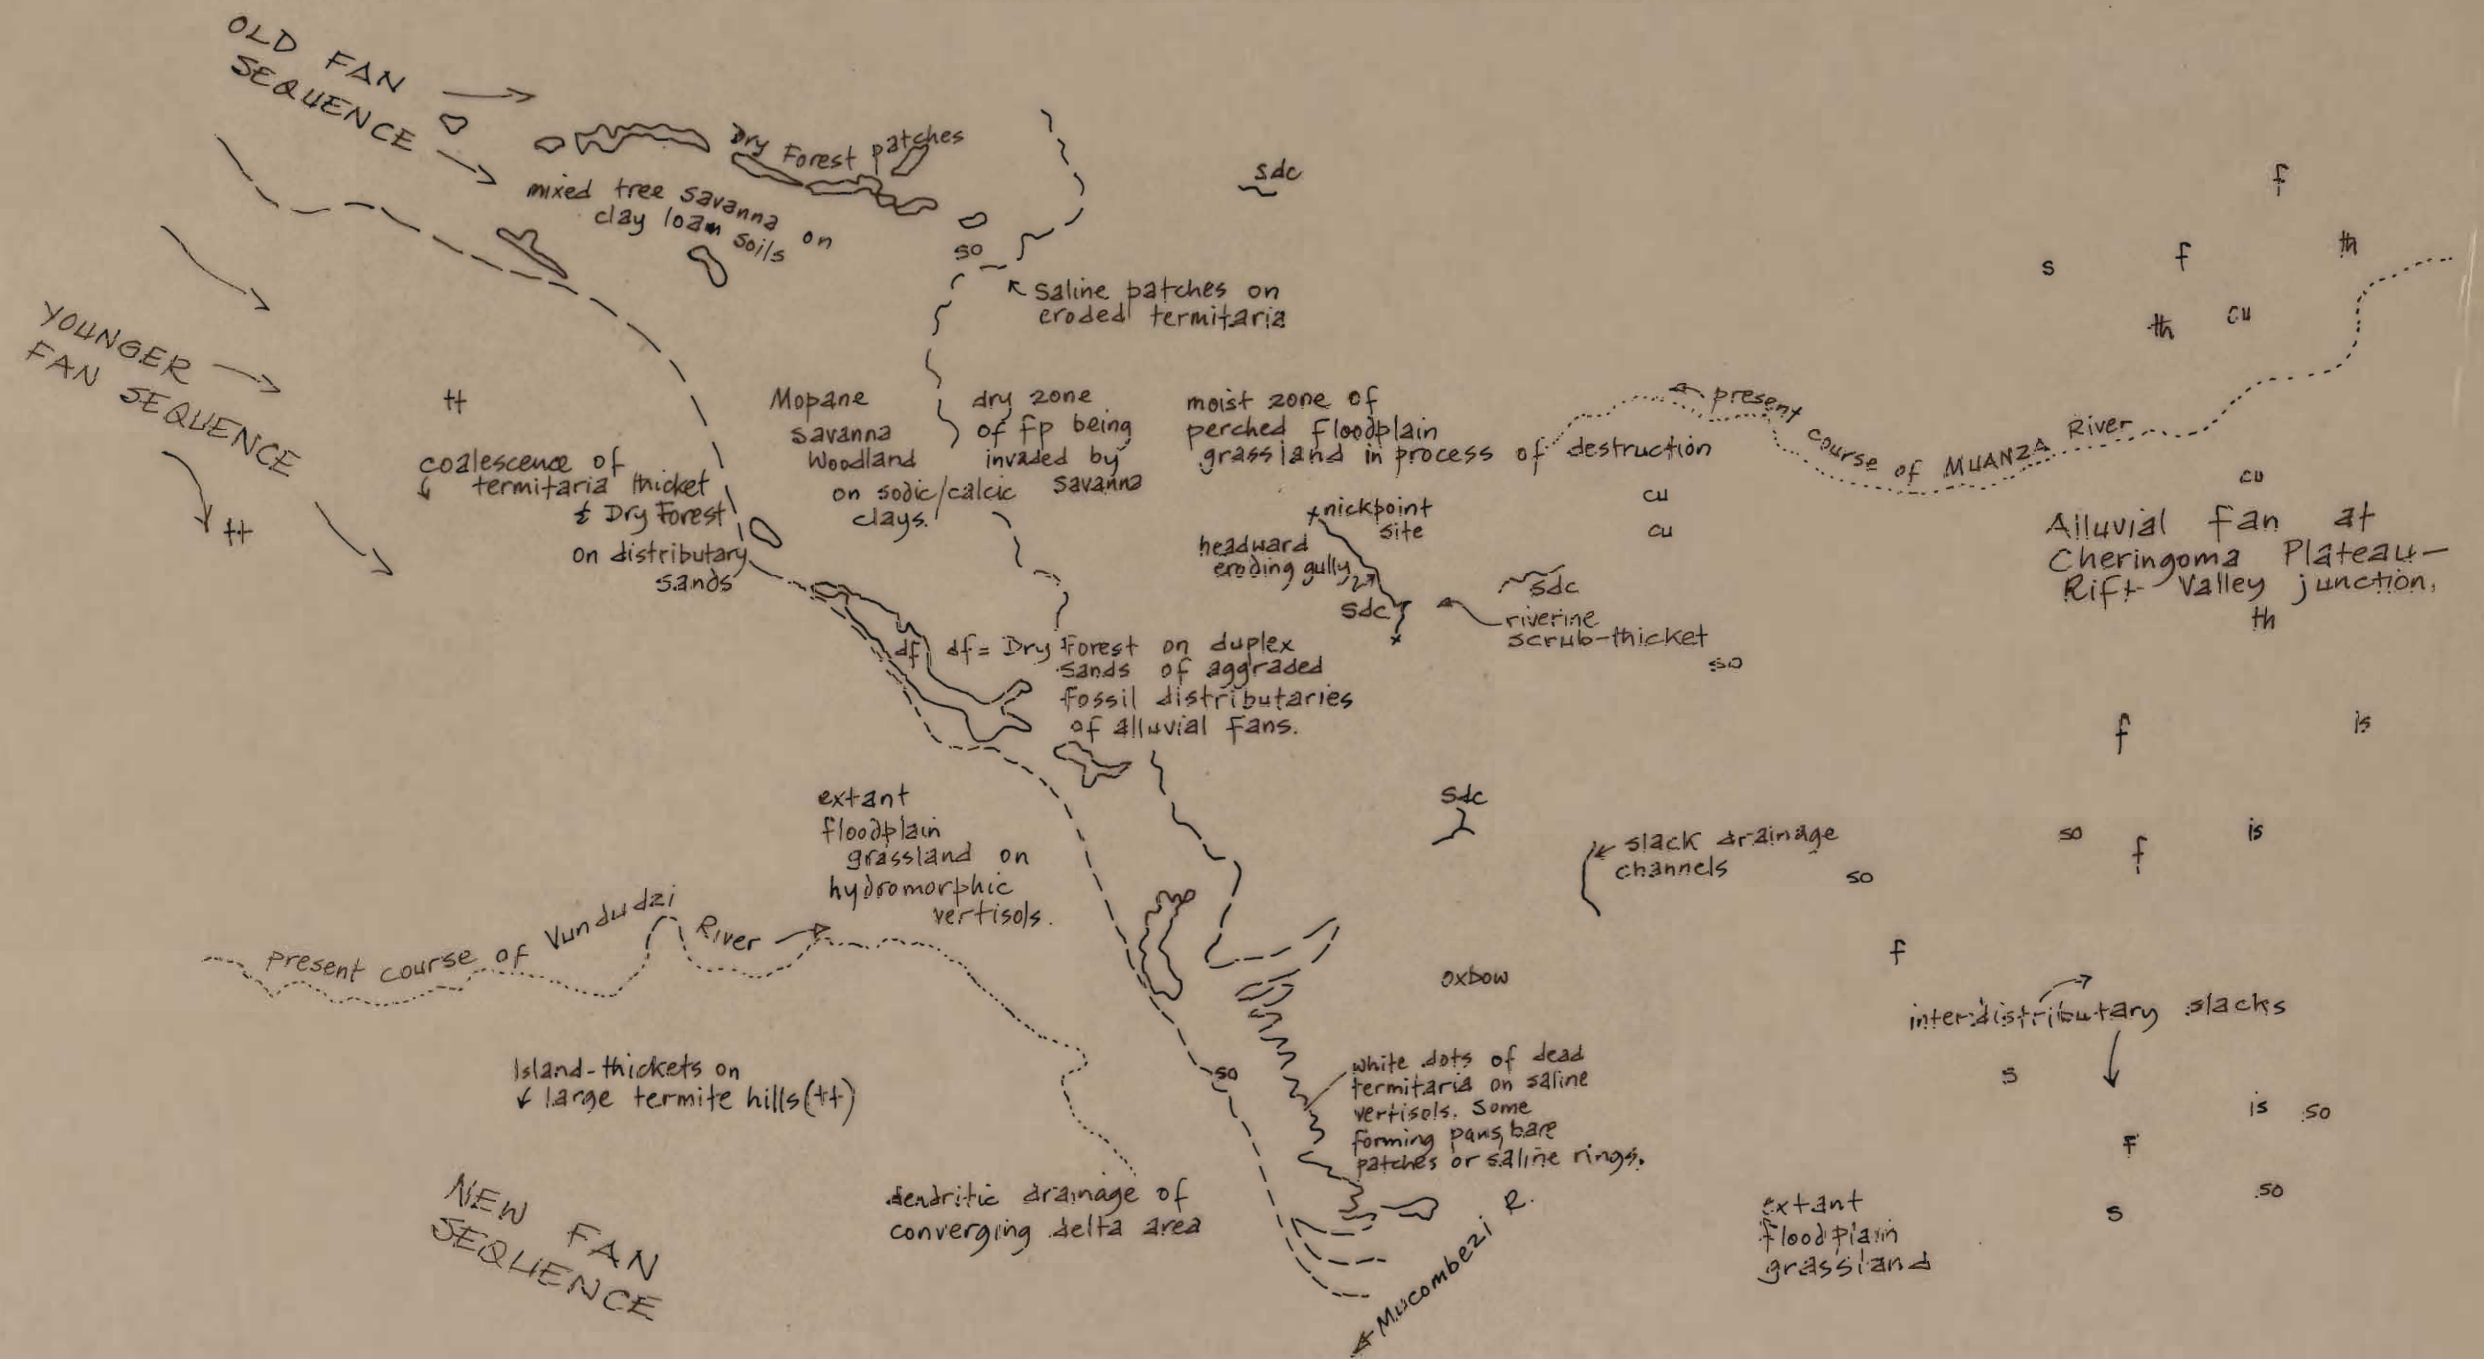 OLD FAN
SEQUENCE
Dry Forest patches
mixed tree savanna on
clay loam soils
so
saline patches on
eroded termitaria
sdc
f
f
th
s
th
cu
YOUNGER
FAN SEQUENCE
tt
coalescence of
termitaria thicket
& Dry Forest
on distributary
sands
tt
Mopane
savanna
woodland
on sodic/calcic
clays.
dry zone
of fp being
invaded by
savanna
moist zone of
perched floodplain
grassland in process of destruction
present course of MUANZA River
cu
cu
cu
nickpoint
site
headward
eroding gully
sdc
sdc
riverine
scrub-thicket
so
Alluvial fan at
Cheringoma Plateau-
Rift Valley junction.
th
df
df = Dry Forest on duplex
sands of aggraded
fossil distributaries
of alluvial fans.
f
is
extant
floodplain
grassland on
hydromorphic
vertisols.
sdc
slack drainage
channels
so
so
f
is
present course of Vundudzi River
f
oxbow
interdistributary slacks
Island-thickets on
large termite hills (tt)
so
white dots of dead
termitaria on saline
vertisols. Some
forming pans, bare
patches or saline rings.
s
is
so
f
so
s
NEW FAN
SEQUENCE
dendritic drainage of
converging delta area
Mucombezi R.
extant
floodplain
grassland